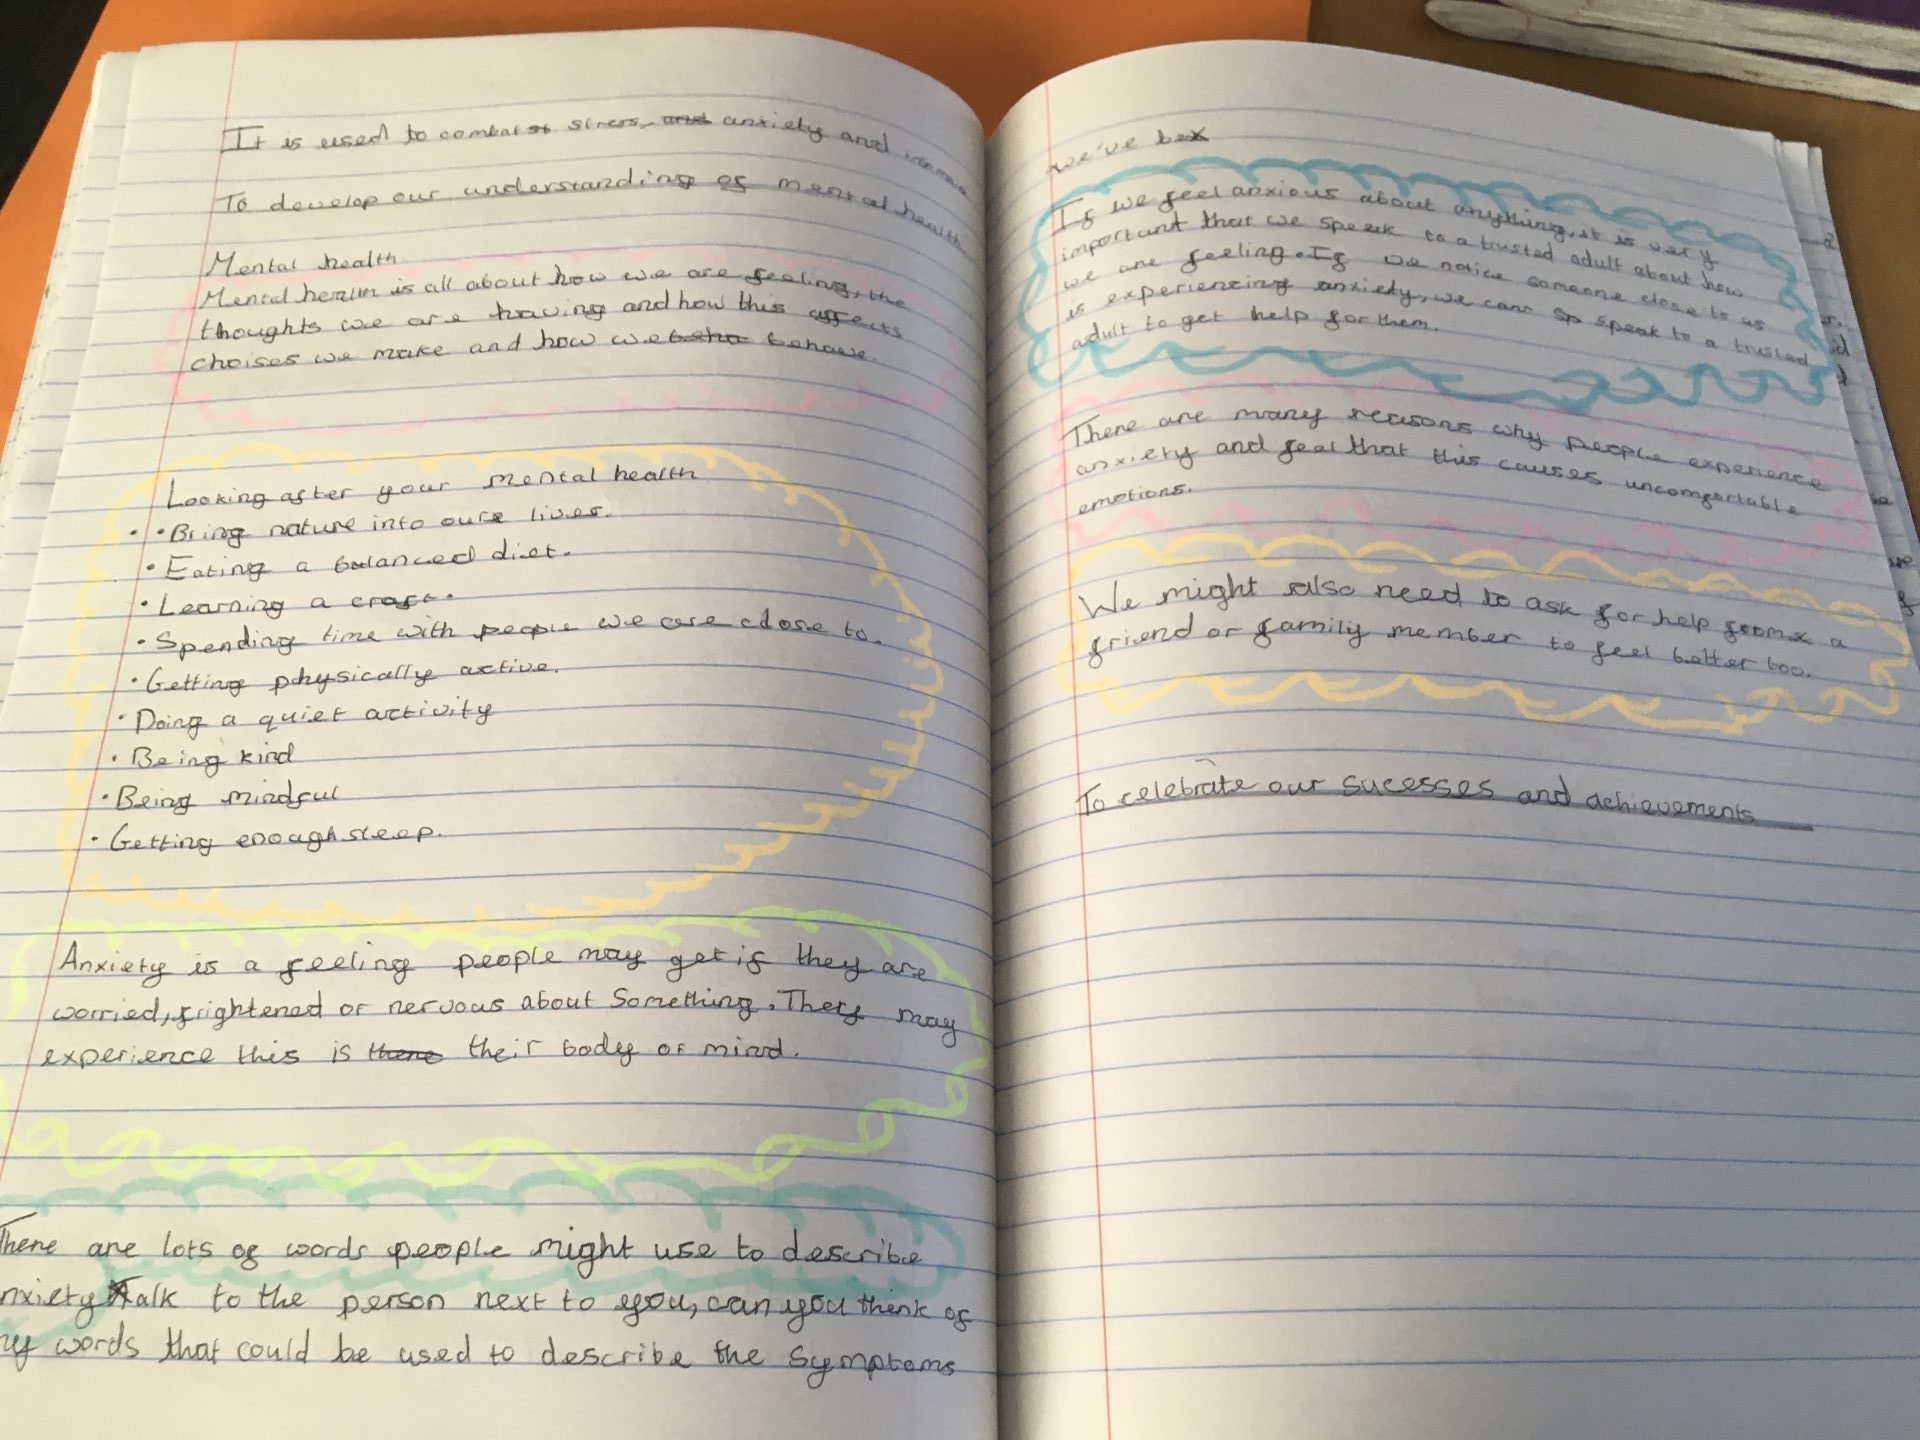 It is used to combat stress, and anxiety and
To develop our understanding of mental health
Mental health
Mental health is all about how we are feeling, the
thoughts we are having and how this affects
choises we make and how we beha behave.
Looking after your mental health
• • Bring nature into our lives.
• Eating a balanced diet.
• Learning a craft.
• Spending time with people we are close to.
• Getting physically active.
• Doing a quiet activity
• Being kind
• Being mindful
• Getting enough sleep.
Anxiety is a feeling people may get if they are
worried, frightened or nervous about Something. They may
experience this is there their body or mind.
There are lots of words people might use to describe
nxiety Talk to the person next to you, can you think of
ny words that could be used to describe the symptoms
we've be
If we feel anxious about anything, it is very
important that we speak to a trusted adult about how
we are feeling. If we notice someone close to us
is experiencing anxiety, we can sp speak to a trusted
adult to get help for them.
There are many reasons why people experience
anxiety and feel that this causes uncomfortable
emotions.
We might also need to ask for help from a
friend or family member to feel better too.
To celebrate our sucesses and achievements